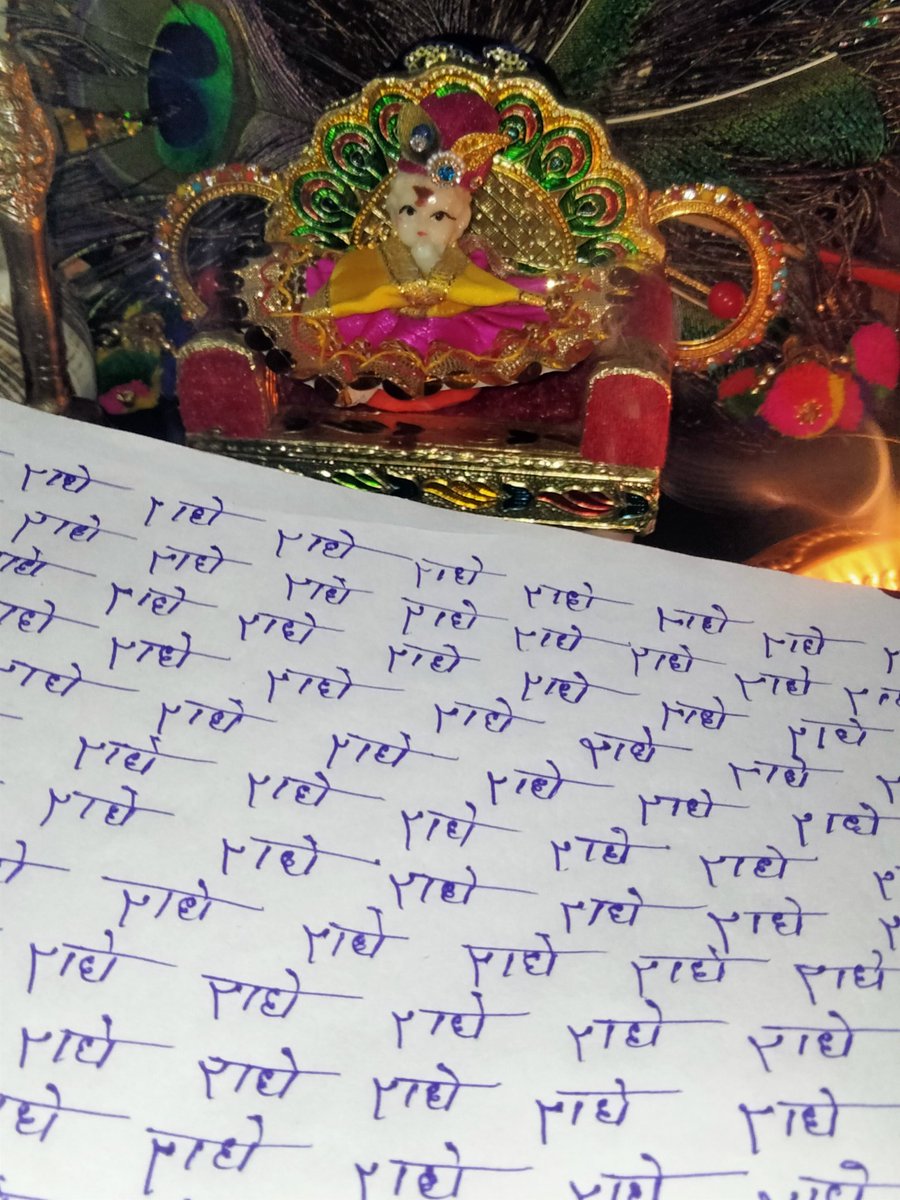 राधे राधे राधे राधे राधे राधे राधे
राधे राधे राधे राधे राधे राधे राधे
राधे राधे राधे राधे राधे राधे राधे
राधे राधे राधे राधे राधे राधे
राधे राधे राधे राधे राधे राधे
राधे राधे राधे राधे राधे
राधे राधे राधे राधे राधे
राधे राधे राधे राधे राधे
राधे राधे राधे राधे राधे
राधे राधे राधे राधे राधे
राधे राधे राधे राधे राधे